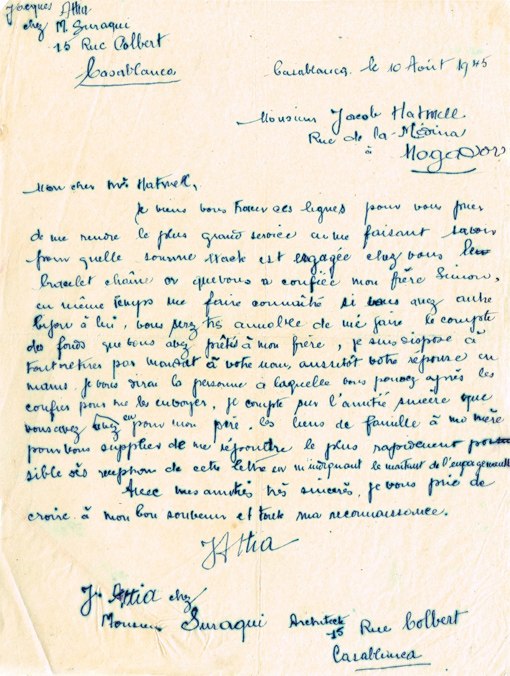 Jacques Attia
chez M. Suraqui
15 Rue Colbert
Casablanca
Casablanca, le 10 Août 1945
Monsieur Jacob Hatwell
Rue de la Médina
à Mogador
Mon cher Mr Hatwell,
Je viens vous tracer ces lignes pour vous prier
de me rendre le plus grand service en me faisant savoir
pour quelle somme est engagée chez vous le
bracelet chaîne or que vous a confiée mon frère Simon,
en même temps me faire connaître si vous avez autre
bijou à lui, vous serez très aimable de me faire le compte
des fonds que vous avez prêtés à mon frère, je suis disposé à
tout retirer par mandat à votre nom, aussitôt votre réponse en
mains je vous dirai la personne à laquelle vous pouvez après les
confier pour me les envoyer, je compte sur l'amitié sincère que
vous avez en pour mon père, les liens de famille à ma mère
pour vous supplier de me répondre le plus rapidement pos
sible dès reception de cette lettre en m'indiquant le montant de l'engagement
Avec mes amitiés très sincères, je vous prie de
croire à mon bon souvenir et toute ma reconnaissance.
JAttia
J. Attia chez
Monsieur Suraqui Architecte
15 Rue Colbert
Casablanca